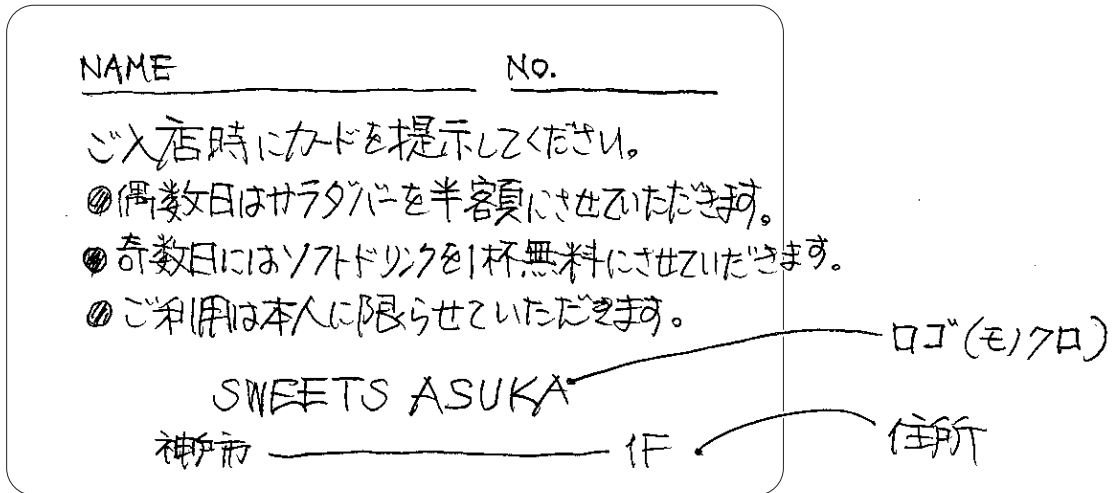 NAME NO.
ご入店時にカードを提示してください。
●偶数日はサラダバーを半額にさせていただきます。
●奇数日にはソフトドリンクを1杯無料にさせていだきます。
●ご利用は本人に限らせていただきます。
SWEETS ASUKA ロゴ(モノクロ)
神戸市 1F 住所